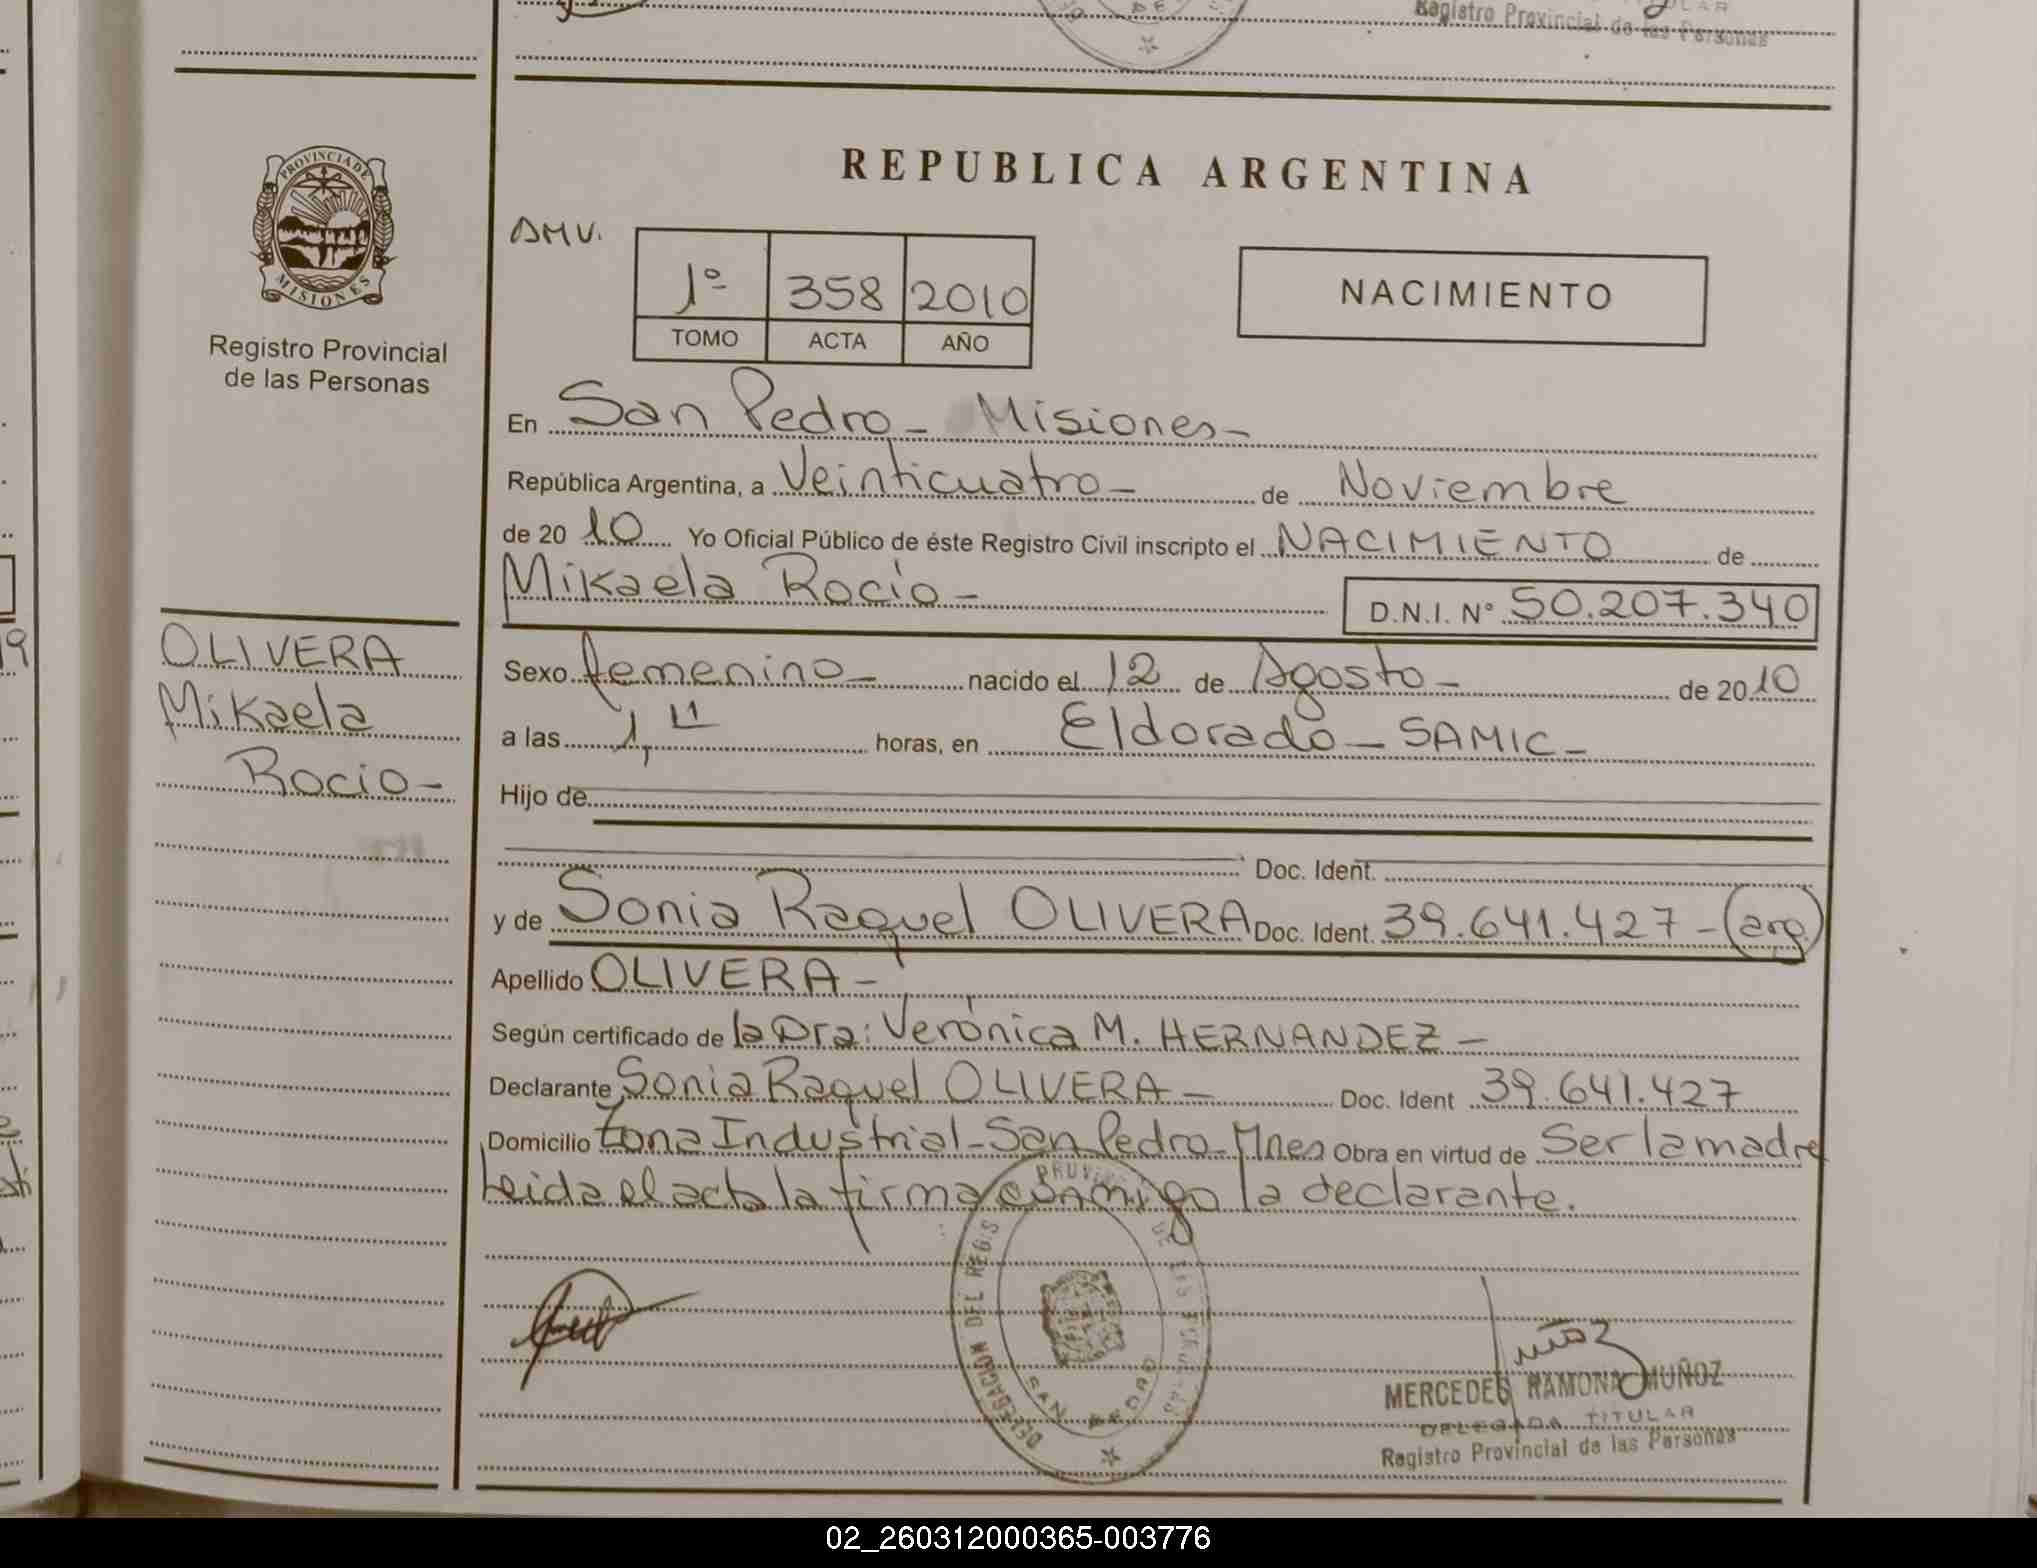 Registro Provincial de las Personas
PROVINCIA DE
MISIONES
Registro Provincial
de las Personas
REPUBLICA ARGENTINA
AMV.
1º 358 2010
TOMO ACTA AÑO
NACIMIENTO
En San Pedro - Misiones -
República Argentina, a Veinticuatro - de Noviembre
de 20 10 Yo Oficial Público de éste Registro Civil inscripto el NACIMIENTO de
Mikaela Rocío - D.N.I. Nº 50.207.340
OLIVERA
Mikaela
Rocio -
Sexo femenino - nacido el 12 de Agosto - de 20 10
a las 1, horas, en Eldorado - SAMIC -
Hijo de
Doc. Ident.
y de Sonia Raquel OLIVERA Doc. Ident. 39.641.427 - (arg)
Apellido OLIVERA -
Según certificado de la Dra: Verónica M. HERNANDEZ -
Declarante Sonia Raquel OLIVERA - Doc. Ident 39.641.427
Domicilio Zona Industrial - San Pedro - Mnes Obra en virtud de Ser la madre
Leida el acta la firma conmigo la declarante.
DELEGACION DEL REGIS
SAN PEDRO
Muñoz
MERCEDES RAMONA MUÑOZ
DELEGADA TITULAR
Registro Provincial de las Personas
02_260312000365-003776